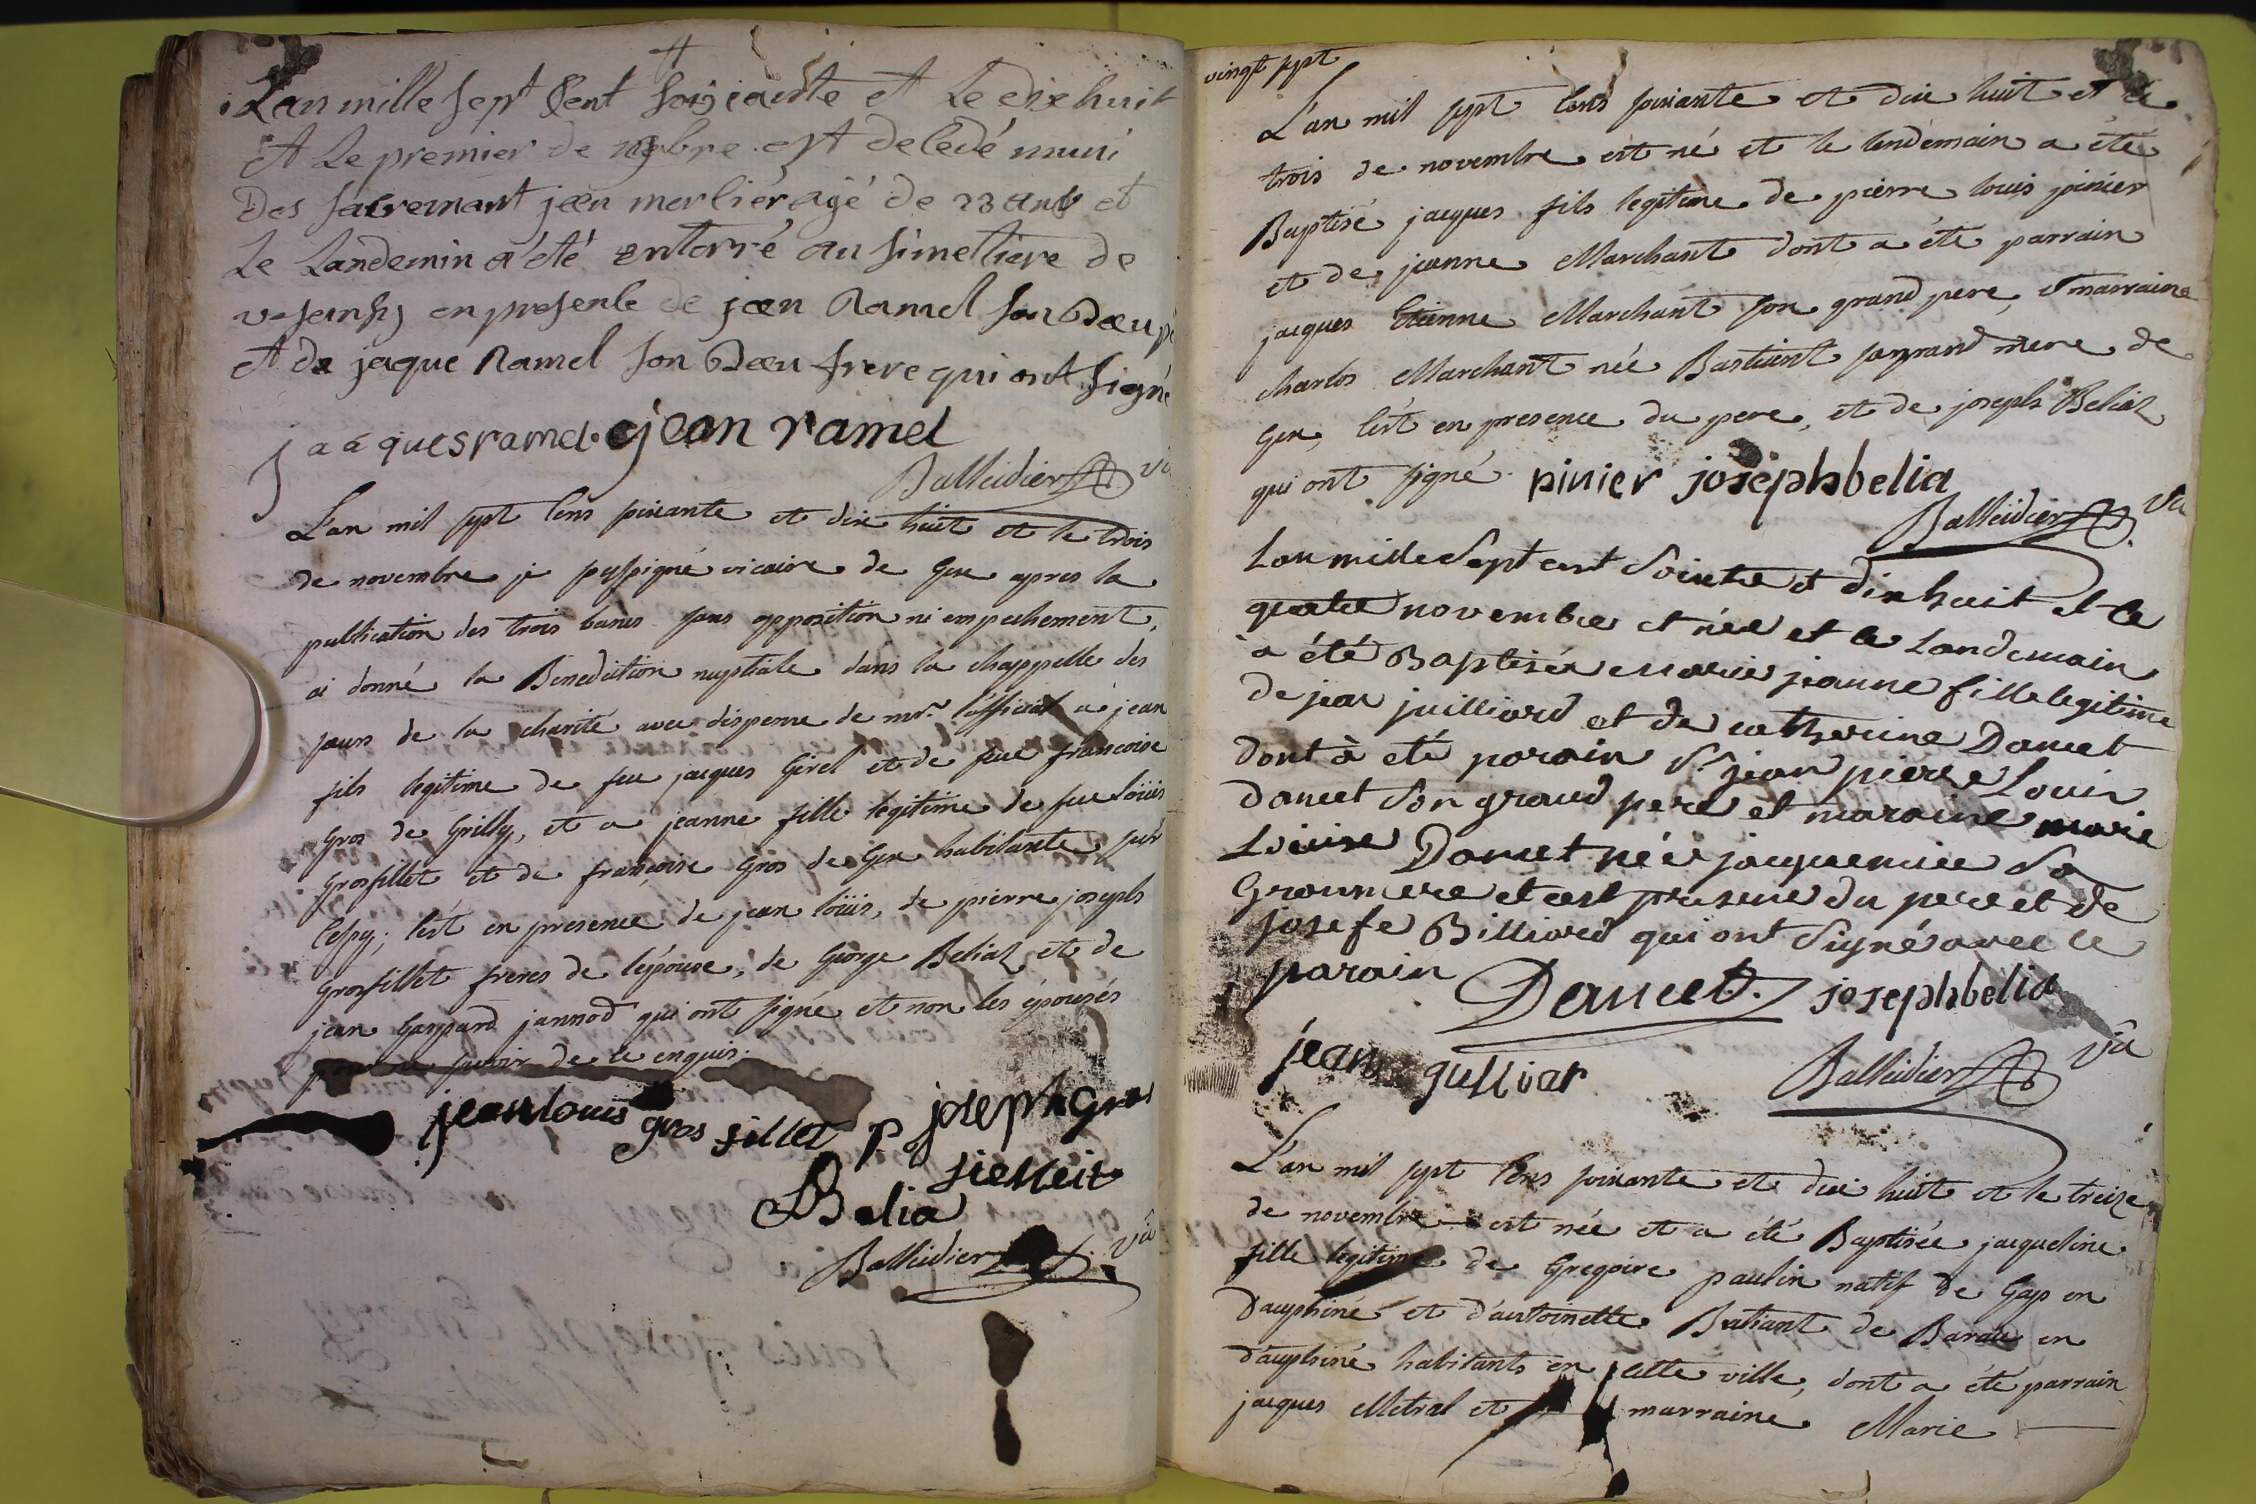 L'an mille sept Cent soixciante et Le dixhuit
et Le premier de 9bre est decedé muni
Des sacremant jean merlier agé de 23 ans et
Le Landemin a été entorré au simettiere de
vesensy en presence de jean Ramel son Beaupe
et de jaque Ramel son Beau frere qui ont signé
jaaquesramel. jean ramel
Balleidier vic
L'an mil sept Cens soixante et dix huit et le trois
de novembre je soussigné vicaire de Gex apres la
publication des trois bancs sans opposition ni empechement,
ai donné la Benediction nuptiale dans la chappelle des
sœurs de la charité avec dispense de mr. l'official à jean
fils legitime de feu jacques Girel et de feue francoise
Gros de Grilly, et a jeanne fille legitime de feu loüis
Grosfillet et de francoise Gros de Gex habitante sur
Cessy; c'est en presence de jean loüis, de pierre joseph
Grosfillet freres de l'épouse, de George Beliaz et de
jean Gaspard jannod qui ont signé et non les épousés
pour ne savoir de ce enquis.
jean louis gros fillet p joseph Gros
fielleit
Belia
Balleidier vic
vingt sept
L'an mil sept Cens soixante et dix huit et le
trois de novembre est né et le lendemain a été
Baptisé jacques fils legitime de pierre louis pinier
et de jeanne Marchant dont a été parrain
jacques Etienne Marchant son grand pere, et marraine
charlos Marchant née Bastiant sa grand mere de
Gex, c'est en presence du pere, et de joseph Beliaz
qui ont signé pinier josephbelia
Balleidier vic
Lan mille Sept cent Soixante et dix huit et le
quatre novembre et née et le Landemain
à été Baptisée Marie jeanne fille legitime
de jean juilliard et de catherine Dancet
dont à eté parain Sr jean pierre Louis
Dancet Son grand pere et maraine marie
Louise Dancet née jacquemier Sa
Granmere et cest presence du pere et de
josefe Billiard qui ont Signé avec le
parain Dancet. josephbelia
jean gulliar Balleidier vic
L'an mil sept Cens soixante et dix huit et le treize
de novembre est née et a été Baptisée jacqueline
fille legitime de Gregoire paulin natif de Gap en
Dauphiné et d'antoinette Batiant de Baraux en
dauphiné habitants en cette ville, dont a été parrain
jacques Metral et marraine Marie